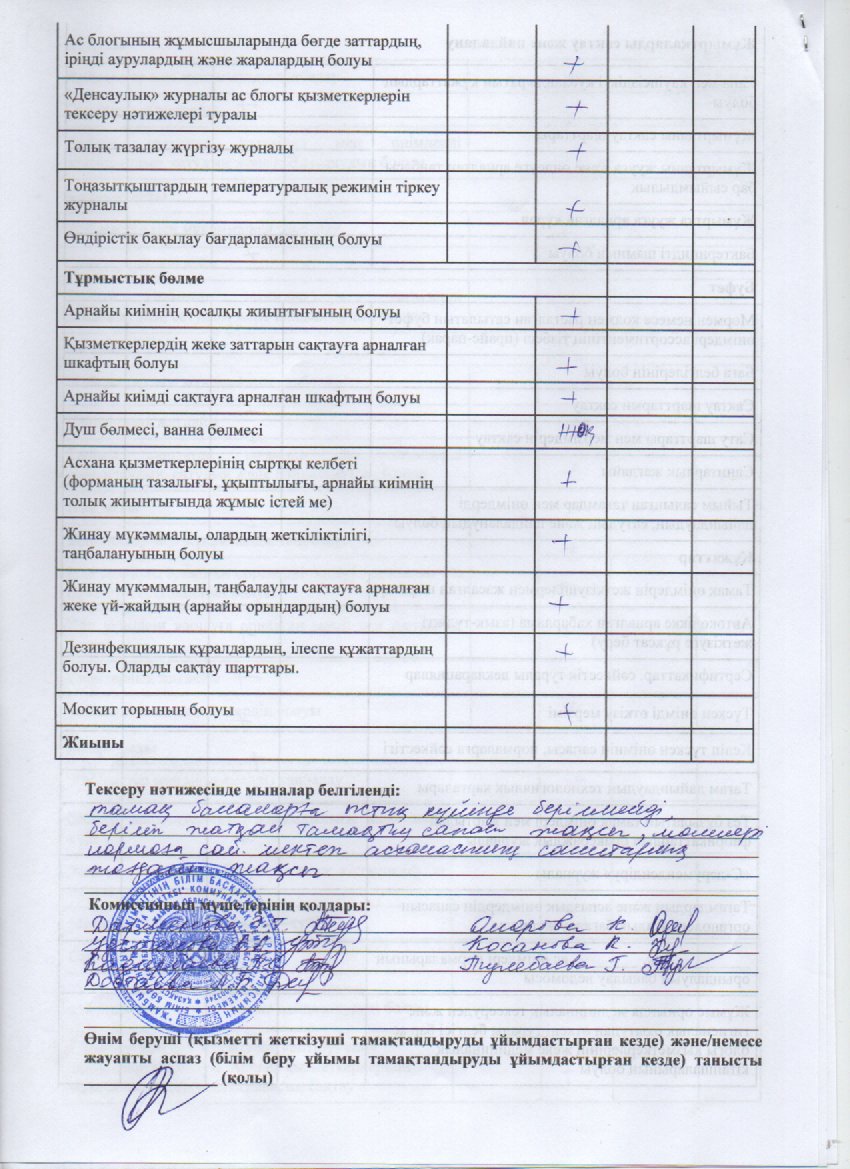 Ас блогының жұмысшыларында бөгде заттардың,
іріңді аурулардың және жаралардың болуы +
«Денсаулық» журналы ас блогы қызметкерлерін
тексеру нәтижелері туралы +
Толық тазалау жүргізу журналы +
Тоңазытқыштардың температуралық режимін тіркеу
журналы +
Өндірістік бақылау бағдарламасының болуы +
Тұрмыстық бөлме
Арнайы киімнің қосалқы жиынтығының болуы +
Қызметкерлердің жеке заттарын сақтауға арналған
шкафтың болуы +
Арнайы киімді сақтауға арналған шкафтың болуы +
Душ бөлмесі, ванна бөлмесі
Асхана қызметкерлерінің сыртқы келбеті
(форманың тазалығы, ұқыптылығы, арнайы киімнің +
толық жиынтығында жұмыс істей ме)
Жинау мүкәммалы, олардың жеткіліктілігі,
таңбалануының болуы +
Жинау мүкәммалын, таңбалауды сақтауға арналған
жеке үй-жайдың (арнайы орындардың) болуы +
Дезинфекциялық құралдардың, ілеспе құжаттардың
болуы. Оларды сақтау шарттары. +
Москит торының болуы +
Жиыны
Тексеру нәтижесінде мыналар белгіленді:
тамақ балаларға ыстық күйінде берілмейді,
беріліп жатқан тамақтың сапасы жақсы, мөлшері
нормаға сай мектеп асханасының санитарлық
жағдайы жақсы
Комиссияның мүшелерінің қолдары:
Омарова К.
Косанова К.
Тулебаева Г.
Өнім беруші (қызметті жеткізуші тамақтандыруды ұйымдастырған кезде) және/немесе
жауапты аспаз (білім беру ұйымы тамақтандыруды ұйымдастырған кезде) танысты
(қолы)